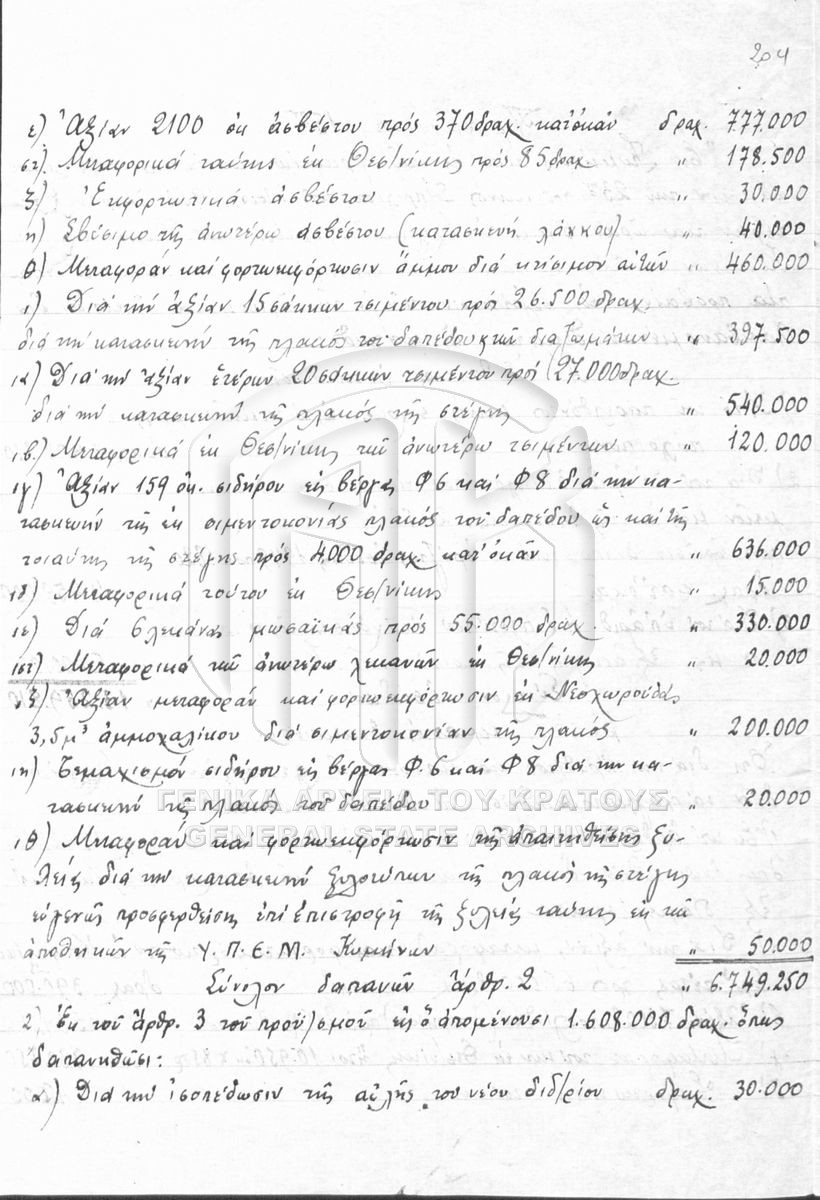 204
ε) Ἀξίαν 2100 ὀκ ἀσβέστου πρός 370 δραχ. κατ' ὀκάν δραχ. 777.000
στ) Μεταφορικά ταύτης ἐκ Θεσ/νίκης πρός 85 δραχ. " 178.500
ζ) Ἐκφορτωτικά ἀσβέστου " 30.000
η) Σβύσιμο τῆς ἀνωτέρω ἀσβέστου (κατασκευή λάκκου) " 40.000
θ) Μεταφοράν καί φορτωεκφόρτωσιν ἄμμου διά κτίσιμον αὐτῶν " 460.000
ι) Διά τήν ἀξίαν 15 σάκκων τσιμέντου πρός 26.500 δραχ.
διά τήν κατασκευήν τῆς πλακός τοῦ δαπέδου κ τῶν διαζωμάτων " 397.500
ια) Διά τήν ἀξίαν ἑτέρων 20 σάκκων τσιμέντου πρός 27.000 δραχ.
διά τήν κατασκευήν τῆς πλακός τῆς στέγης " 540.000
ιβ) Μεταφορικά ἐκ Θεσ/νίκης τῶν ἀνωτέρω τσιμέντων " 120.000
ιγ) Ἀξίαν 159 ὀκ. σιδήρου εἰς βέργας Φ6 καί Φ8 διά τήν κα-
τασκευήν τῆς ἐκ σιμεντοκονίας πλακός τοῦ δαπέδου ὡς καί τῆς
τοιαύτης τῆς στέγης πρός 4000 δραχ. κατ' ὀκᾶν " 636.000
ιδ) Μεταφορικά τούτου ἐκ Θεσ/νίκης " 15.000
ιε) Διά 6 λεκάνας μωσαϊκάς πρός 55.000 δραχ. " 330.000
ιστ) Μεταφορικά τῶν ἀνωτέρω λεκανῶν ἐκ Θεσ/νίκης " 20.000
ιζ) Ἀξίαν μεταφοράν καί φορτωεκφόρτωσιν ἐκ Νεοχωρούδας
3,5 μ³ ἀμμοχαλίκου διά σιμεντοκονίαν τῆς πλακός " 200.000
ιη) Τεμαχισμόν σιδήρου εἰς βέργας Φ.6 καί Φ8 διά τήν κα-
τασκευήν τῆς πλακός τοῦ δαπέδου " 20.000
ΓΕΝΙΚΑ ΑΡΧΕΙΑ ΤΟΥ ΚΡΑΤΟΥΣ
GENERAL STATE ARCHIVES
ιθ) Μεταφοράν καί φορτωεκφόρτωσιν τῆς ἀπαιτηθείσης ξυ-
λείας διά τήν κατασκευήν ξυλοτύπων τῆς πλακός τῆς στέγης
εὐγενῶς προσφερθείσης ἐπί ἐπιστροφῇ τῆς ξυλείας ταύτης ἐκ τῶν
ἀποθηκῶν τῆς Υ.Π.Ε.Μ. Κυμίνων " 50.000
Σύνολον δαπανῶν ἄρθρ. 2 " 6.749.250
2) Ἐκ τοῦ ἄρθρ. 3 τοῦ προϋ/σμοῦ εἰς ὅ ἀπομένουσι 1.608.000 δραχ. ὅπως
δαπανηθῶσι:
α) Διά τήν ἰσοπέδωσιν τῆς αὐλῆς τοῦ νέου διδ/ρίου δραχ. 30.000